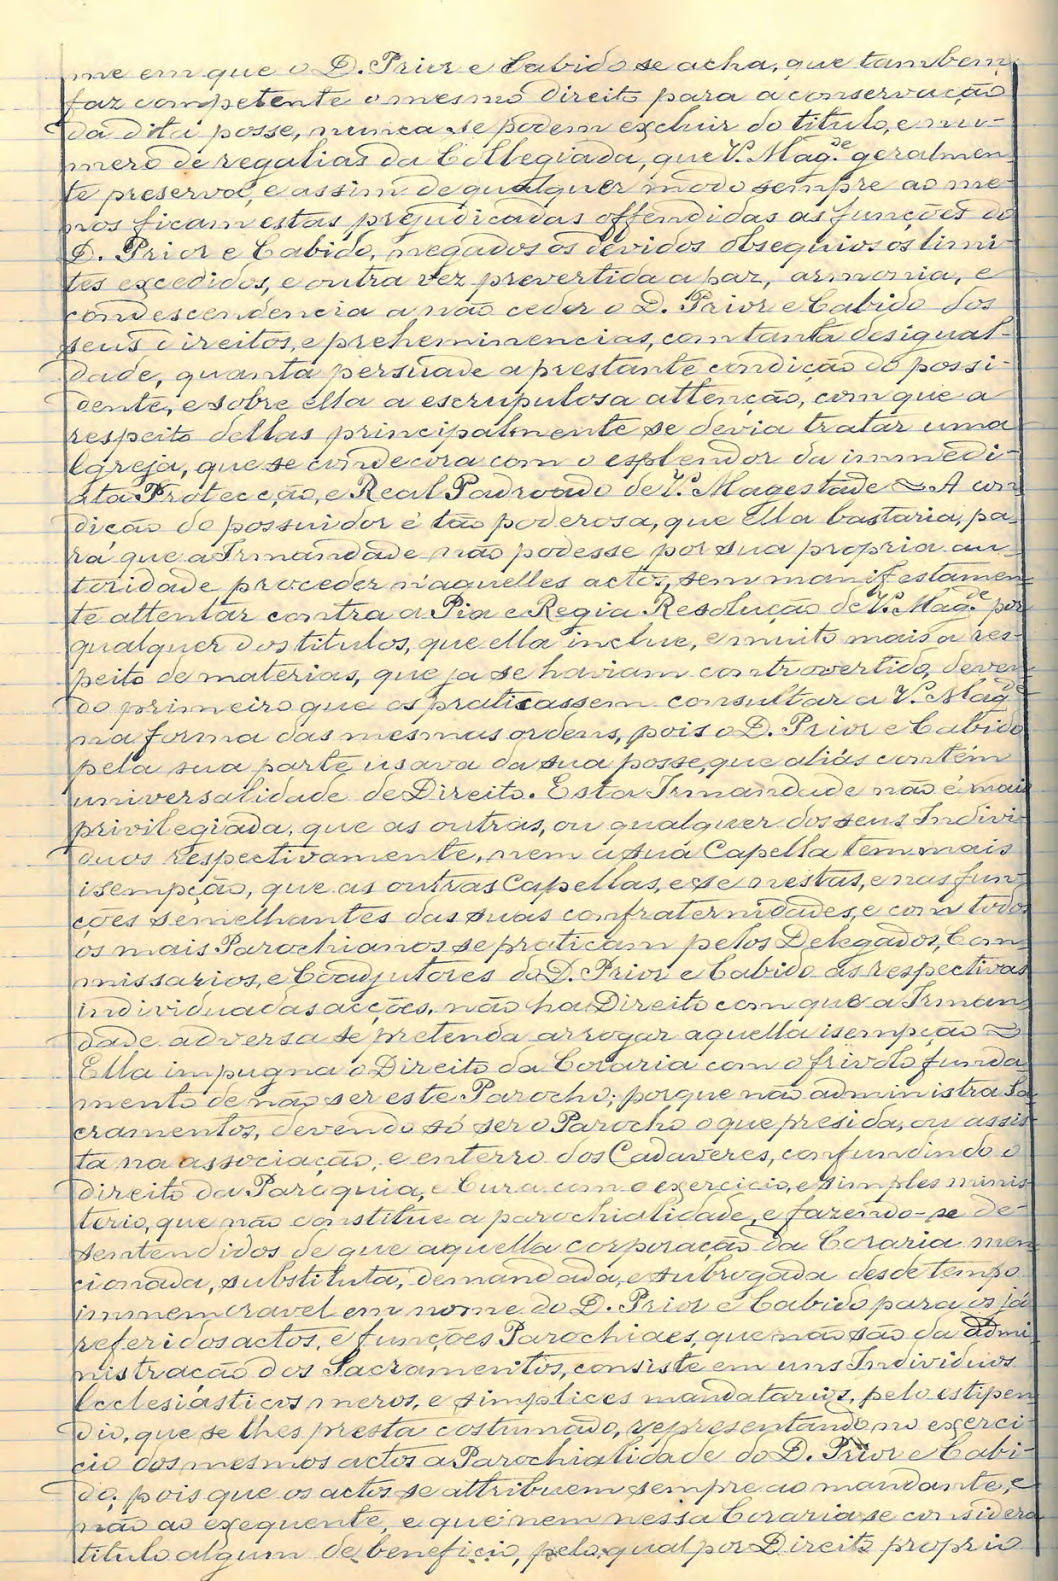 me em que o D. Prior e Cabido se acha, que tambem
faz competente o mesmo direito para a conservação
da dita posse, nunca se podem excluir do titulo, e nu-
mero de regalias da Collegiada, que V. Mag.de geralmen-
te preservou, e assim de qualquer modo sempre ao me-
nos ficam estas prejudicadas offendidas as funções do
D. Prior e Cabido, negados os devidos obsequios os limi-
tes excedidos, e outra vez prevertida a paz, armonia, e
condescendencia a não ceder o D. Prior e Cabido dos
seus direitos, e preheminencias, com tanta desigual-
dade, quanta persuade a prestante condição do possi-
dente, e sobre ella a escrupulosa attenção, com que a
respeito dellas principalmente se devia tratar uma
Igreja, que se condecora com o esplendor da immedi-
ata Protecção, e Real Padroado de V. Magestade ~ A con
dição do possuidor é tão poderosa, que ella bastaria, pa-
ra que a Irmandade não podesse por sua propria au-
toridade proceder n'aquelles actos, sem manifestamen
te attentar contra a Pia e Regia Resolução de V. Mag.de por
qualquer dos titulos, que ella inclue, e muito mais a res-
peito de materias, que ja se haviam controvertido, deven
do primeiro que os praticassem consultar a V. Mag.de
na forma das mesmas ordens, pois o D. Prior e Cabido
pela sua parte usava da sua posse, que aliás contém
universalidade de Direito. Esta Irmandade não é mais
privilegiada, que as outras, ou qualquer dos seus Indivi-
duos respectivamente, nem a sua Capella tem mais
isempção, que as outras Capellas, e se nestas, e nas fun-
ções semelhantes das suas confraternidades, e com todos
os mais Parochianos se praticam pelos Delegados, Com-
missarios, e Coadjutores do D. Prior e Cabido as respectivas
individuadas acções, não ha Direito com que a Irman-
dade adversa se pretenda arrogar aquella isempção ~
Ella impugna o Direito da Coraria com o frivolo funda
mento de não ser este Parocho, porque não administra Sa
cramentos, devendo só ser o Parocho o que presida, ou assis
ta na associação, e enterro dos Cadaveres, confundindo o
direito da Paroquia, e Cura com o exercicio, e simples minis
terio, que não constitue a parochialidade, e fazendo-se de-
sentendidos de que aquella corporação da Coraria men
cionada, substituta, demandada, e subrogada desde tempo
immemoravel em nome do D. Prior e Cabido para os já
referidos actos, e funções Parochiaes, que não são da admi
nistração dos Sacramentos, consiste em uns Individuos
Ecclesiasticos meros, e simplices mandatarios, pelo estipen
dio, que se lhes presta costumado, representando no exerci-
cio dos mesmos actos a Parochialidade do D. Prior e Cabi-
do, pois que os actos se attribuem sempre ao mandante, e
não ao exequente, e que nem nessa Coraria se considera
titulo algum de beneficio, pelo qual por Direito proprio